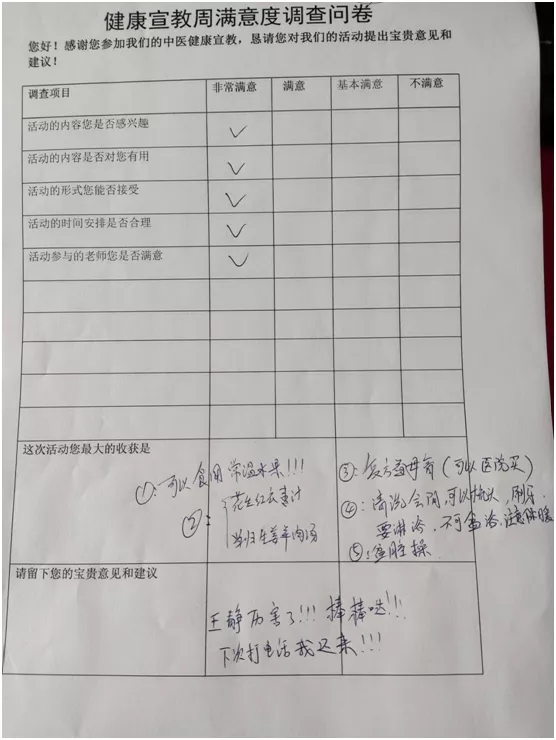 健康宣教周满意度调查问卷
您好！感谢您参加我们的中医健康宣教，恳请您对我们的活动提出宝贵意见和
建议！
调查项目 非常满意 满意 基本满意 不满意
活动的内容您是否感兴趣 ✓
活动的内容是否对您有用 ✓
活动的形式您能否接受 ✓
活动的时间安排是否合理 ✓
活动参与的老师您是否满意 ✓
这次活动您最大的收获是
①：可以食用常温水果！！！
②：花生红衣姜汁
当归生姜羊肉汤
③：复方益母膏（可以医院买）
④：清洗会阴，可以梳头，刷牙
要淋浴，不可盆浴，注意保暖
⑤：盆腔操
请留下您的宝贵意见和建议
王静厉害了！！！棒棒哒！！！
下次打电话我还来！！！